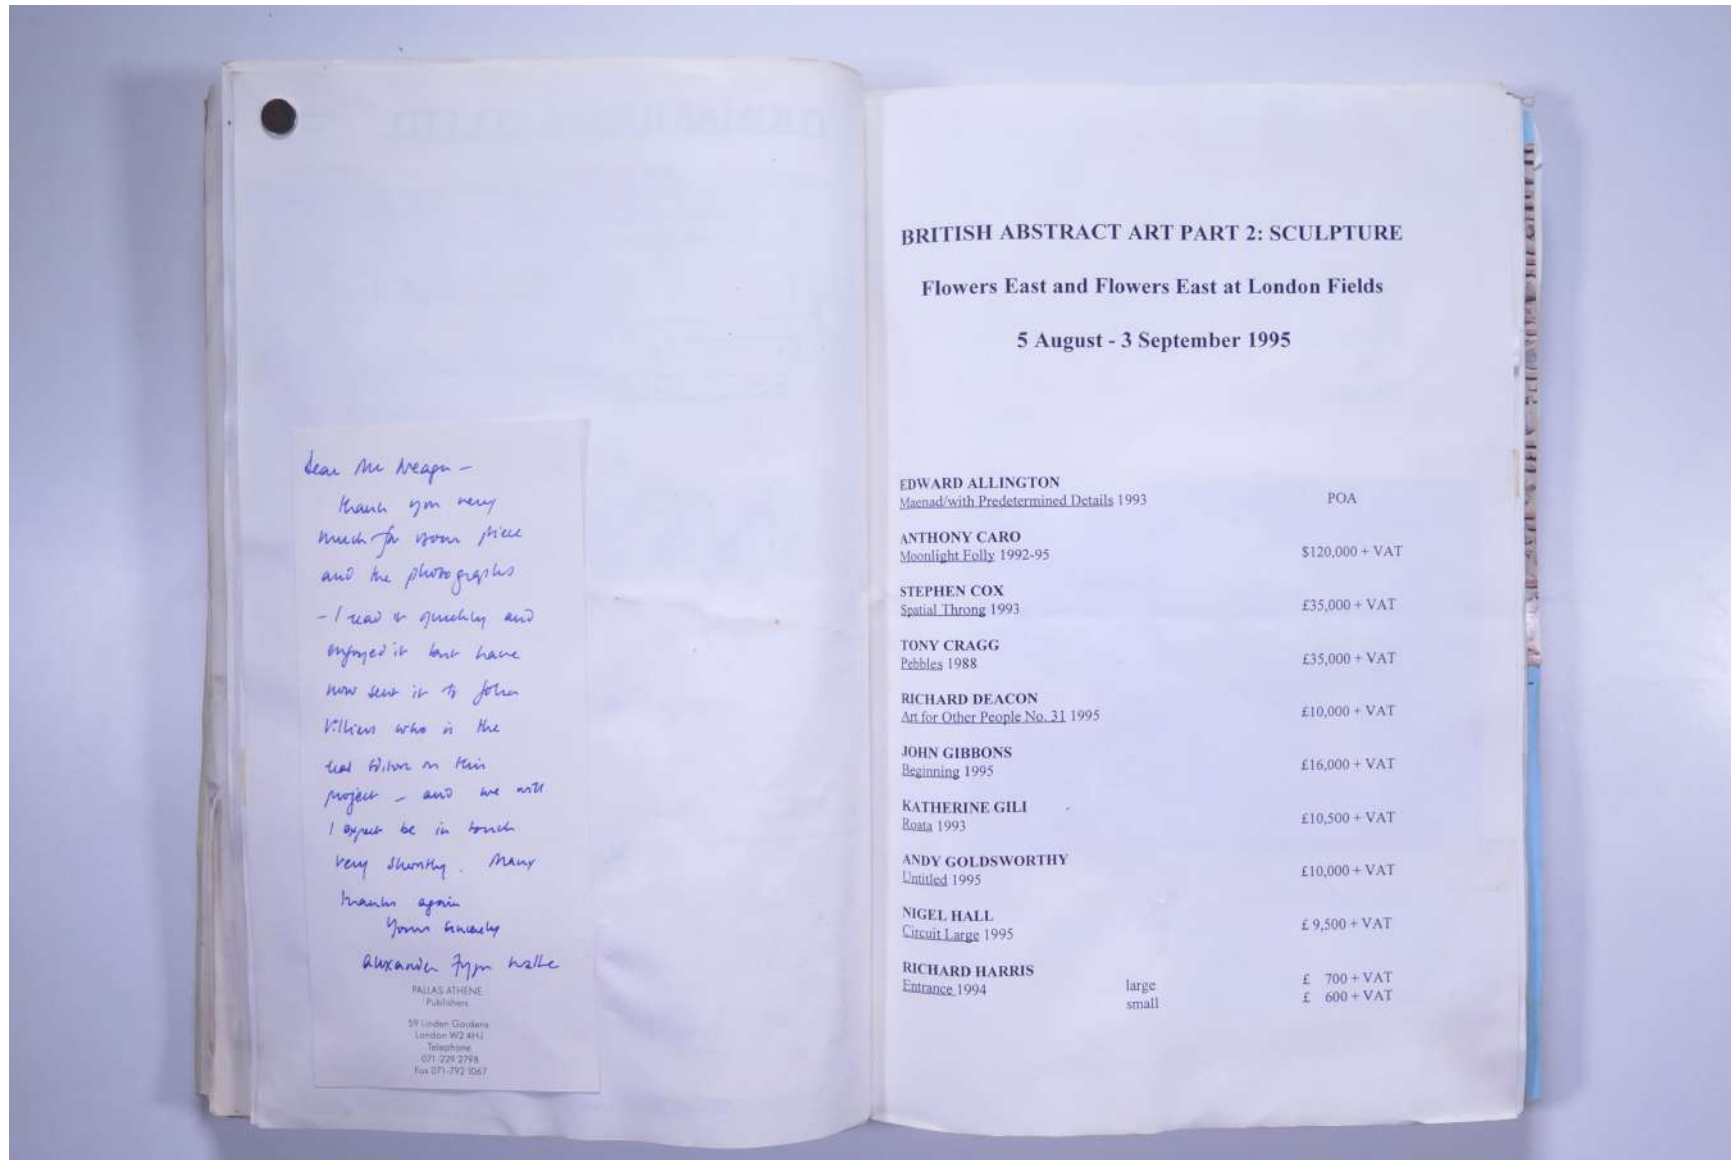 Dear Mr Neagu –
thank you very
much for your piece
and the photographs
– I read it quickly and
enjoyed it but have
now sent it to John
Villiers who is the
editor on this
project – and we will
I expect be in touch
very shortly. Many
thanks again
Yours sincerely
Alexander Fyjis-Walker
PALLAS ATHENE
Publishers
59 Linden Gardens
London W2 4HJ
Telephone
071-229 2798
Fax 071-792 1067
BRITISH ABSTRACT ART PART 2: SCULPTURE
Flowers East and Flowers East at London Fields
5 August - 3 September 1995
EDWARD ALLINGTON
Maenad/with Predetermined Details 1993 POA
ANTHONY CARO
Moonlight Folly 1992-95 $120,000 + VAT
STEPHEN COX
Spatial Throng 1993 £35,000 + VAT
TONY CRAGG
Pebbles 1988 £35,000 + VAT
RICHARD DEACON
Art for Other People No. 31 1995 £10,000 + VAT
JOHN GIBBONS
Beginning 1995 £16,000 + VAT
KATHERINE GILI
Roata 1993 £10,500 + VAT
ANDY GOLDSWORTHY
Untitled 1995 £10,000 + VAT
NIGEL HALL
Circuit Large 1995 £ 9,500 + VAT
RICHARD HARRIS
Entrance 1994 large £ 700 + VAT
small £ 600 + VAT